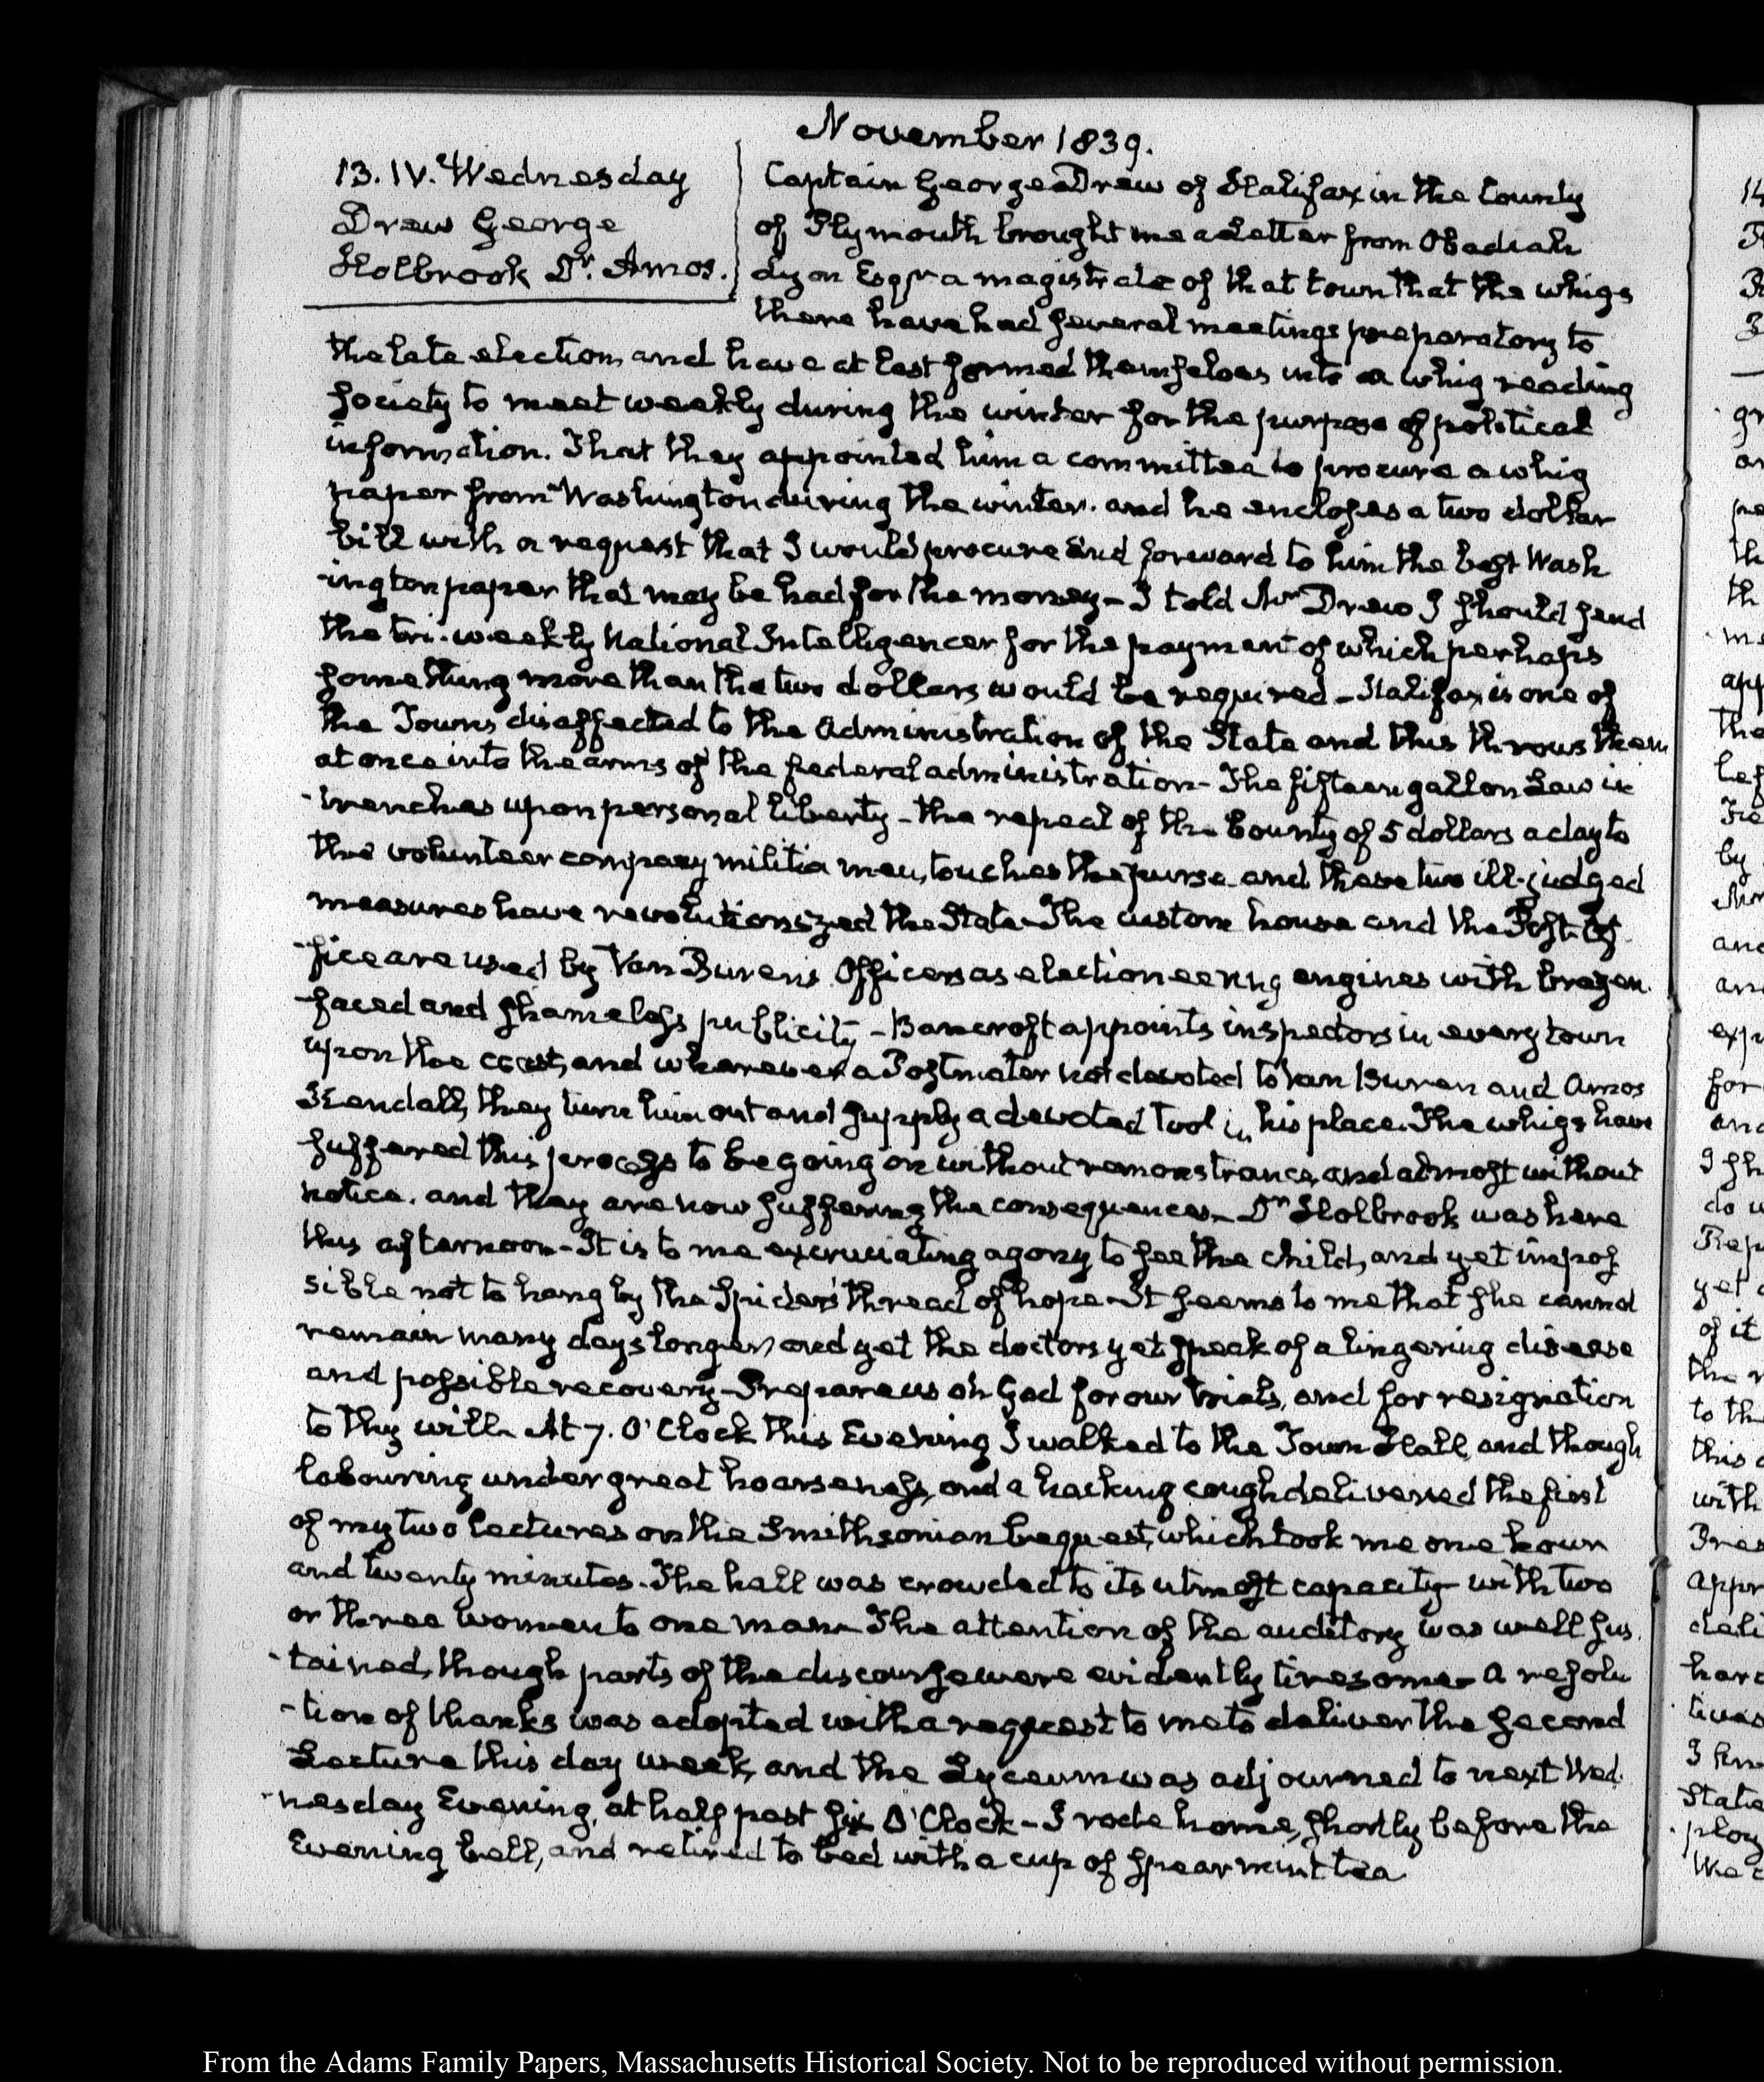 November 1839.
13. IV. Wednesday
Drew George
Holbrook Dr. Amos.
Captain George Drew of Halifax in the County
of Plymouth brought me a Letter from Obadiah
Lyon Esqr a magistrate of that town that the whigs
there have had several meetings preparatory to
the late election, and have at last formed themselves into a whig reading
society to meet weekly during the winter for the purpose of political
information. That they appointed him a committee to procure a whig
paper from Washington during the winter. and he encloses a two dollar
bill with a request that I would procure and forward to him the best Wash
-ington paper that may be had for the money – I told Mr Drew I should send
the tri-weekly National Intelligencer for the payment of which perhaps
something more than the two dollars would be required – Halifax is one of
the Towns disaffected to the Administration of the State and this throws them
at once into the arms of the federal administration – The fifteen gallon Law in
-trenches upon personal liberty – the repeal of the bounty of 5 dollars a day to
the volunteer company militia men, touches the purse and these two ill-judged
measures have revolutionized the State – The custom house and the Post-Of
-fice are used by Van Buren's Officers as electioneering engines with brazen
-faced and shameless publicity – Bancroft appoints inspectors in every town
upon the coast, and wherever a Postmater not devoted to Van Buren and Amos
Kendall, they turn him out and supply a devoted tool in his place. The whigs have
suffered this process to be going on without remonstrance, and almost without
notice. and they are now suffering the consequences – Dr Holbrook was here
this afternoon – It is to me excruciating agony to see the child, and yet impos
sible not to hang by the Spider's thread of hope – It seems to me that she cannot
remain many days longer, and yet the doctors yet speak of a lingering disease
and possible recovery – Prepare us oh God for our trials, and for resignation
to thy will – At 7. O'Clock this Evening I walked to the Town Hall, and though
labouring under great hoarseness, and a hacking cough delivered the first
of my two lectures on the Smithsonian bequest, which took me one hour
and twenty minutes. The hall was crowded to its utmost capacity – with two
or three women to one man – The attention of the auditory was well sus
-tained, though parts of the discourse were evidently tiresome – A resolu
-tion of thanks was adopted with a request to me to deliver the second
Lecture this day week, and the Lyceum was adjourned to next Wed
-nesday Evening, at half past six O'Clock – I rode home, shortly before the
Evening bell, and retired to bed with a cup of spearmint tea
From the Adams Family Papers, Massachusetts Historical Society. Not to be reproduced without permission.